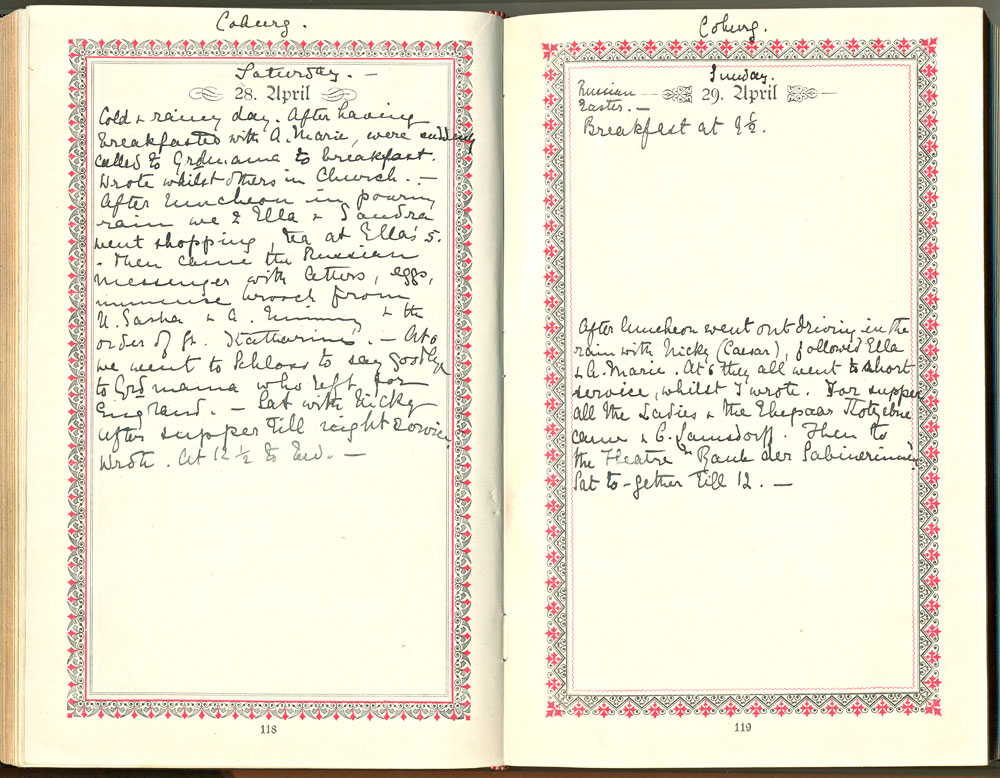 Coburg.
Saturday. —
28. April
Cold & rainy day. After having
breakfasted with A. Marie, were suddenly
called to Grdmama to breakfast.
Wrote whilst others in Church. —
After luncheon in pouring
rain we 2 Ella & Sandra
went shopping, tea at Ella's 5.
. Then came the Russian
messenger with letters, eggs,
immense brosch from
U. Sasha & A. Minny & the
order of St. Katharine. — At 6
we went to Schloss to say goodbye
to Grdmama who left for
England. — Sat with Nicky
after supper till night service
Wrote. At 12 ½ to bed. —
118
Coburg.
Sunday.
Russian
Easter. —
29. April
Breakfast at 9½.
After luncheon went out driving in the
rain with Nicky (Caesar), followed Ella
& A. Marie. At 6 they all went to short
service, whilst I wrote. For supper
all the Ladies & the Ehepaar
came & C. Lamsdorff. Then to
the Theatre "Raub der Sabinerinnen"
Sat to-gether till 12. —
119